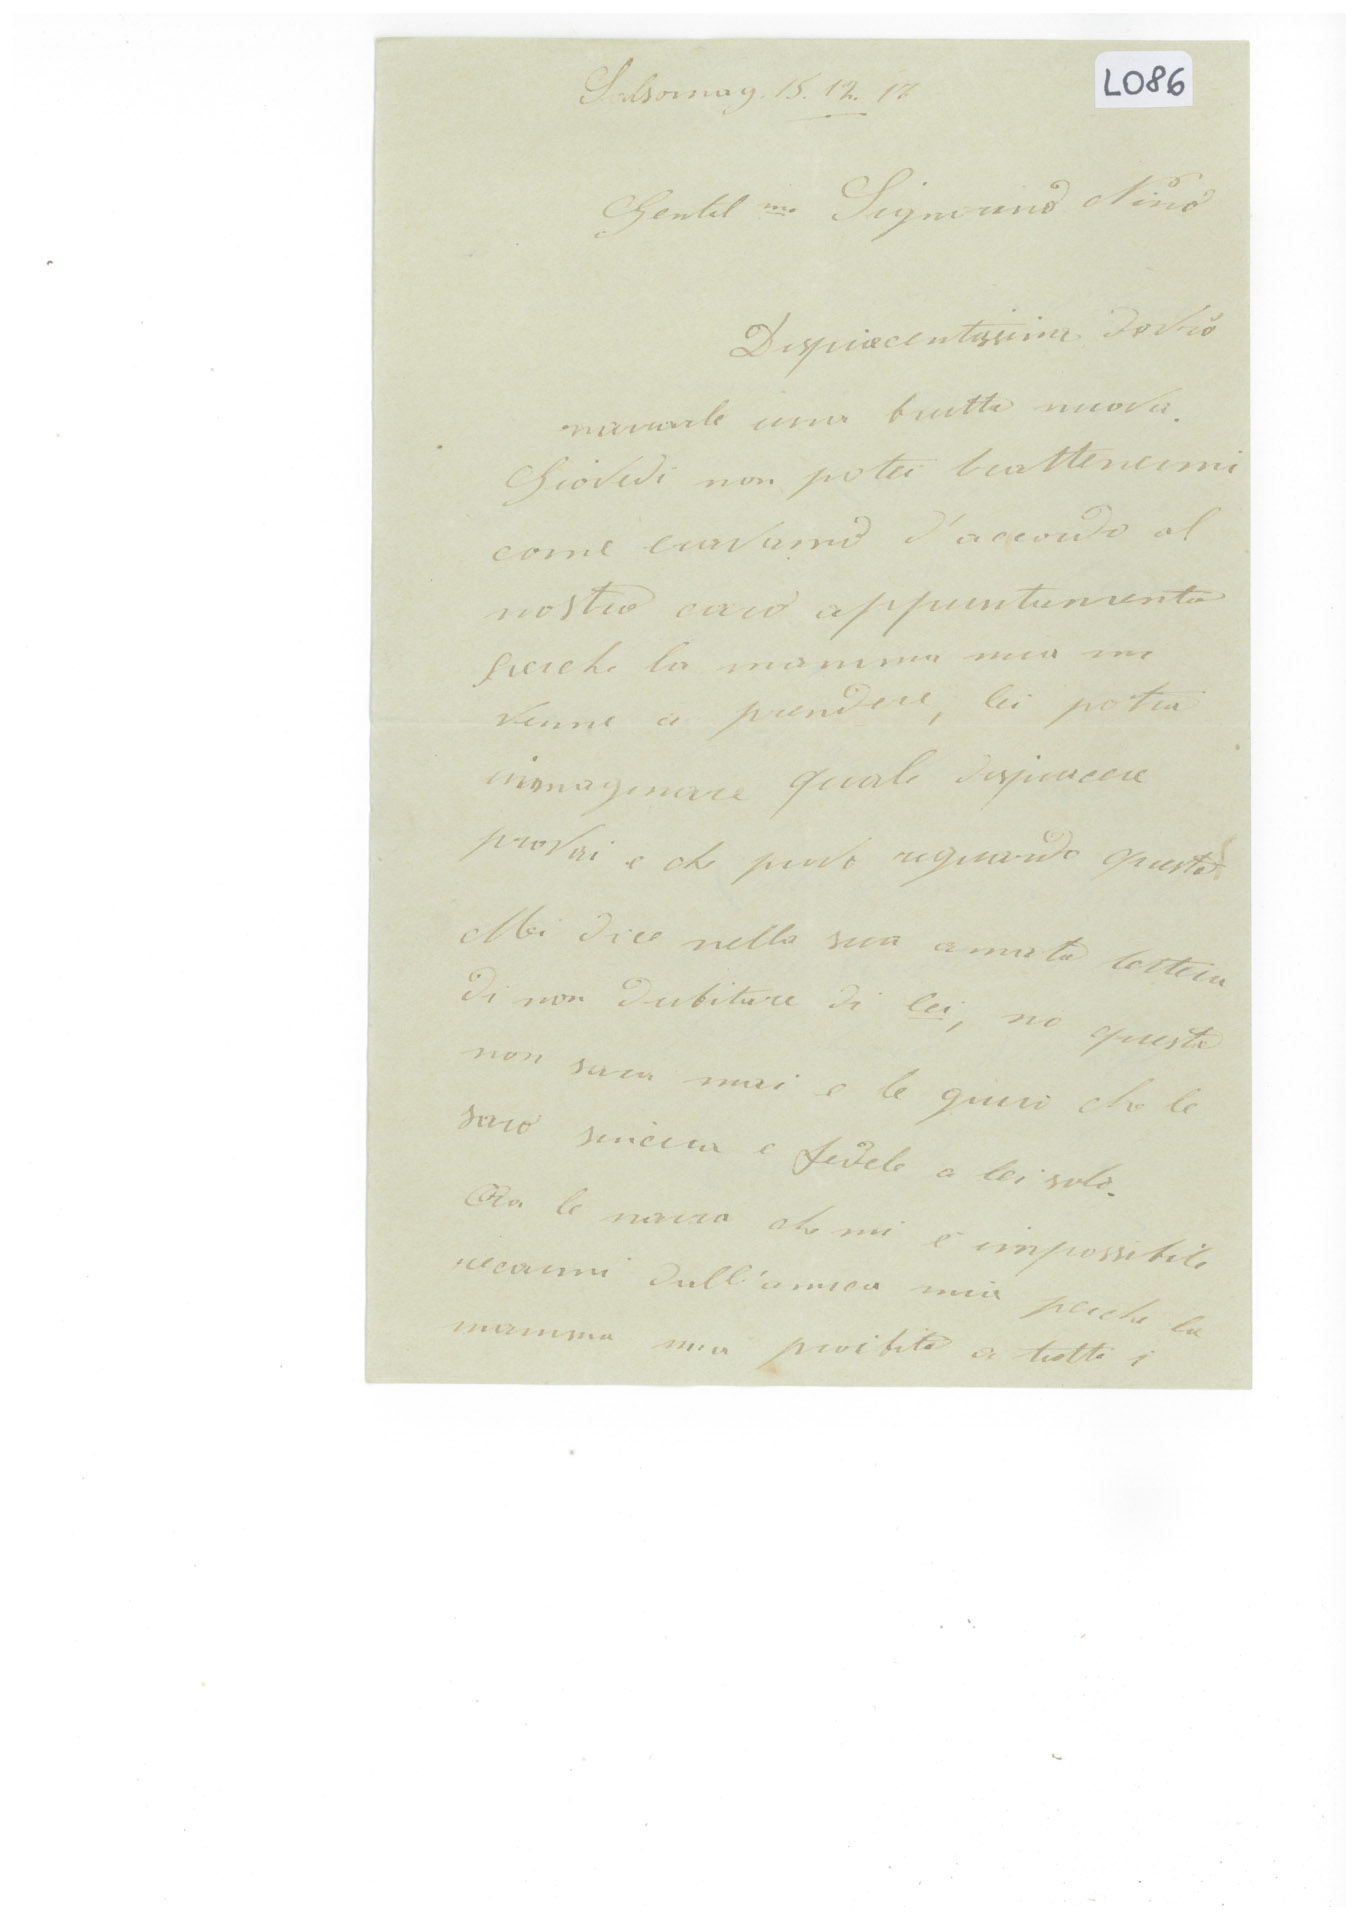 LO86
Salsomag. 15. 12. 12
Gentil mo Signorino Nino
Dispiacentissima dovrò
narrarle una brutta nuova.
Giovedi non potei trattenermi
come eravamo d'accordo al
nostro caro appuntamento
perche la mamma mia mi
venne a prendere, lei potra
immaginare quale dispiacere
provai e che provo riguardo questo
Mi dice nella sua amata lettera
di non dubitare di lei, no questo
non sara mai e le giuro che le
sarò sincera e fedele a lei solo.
Ora le narro che mi è impossibile
recarmi dall'amica mia perche la
mamma mia proibito a tutti i